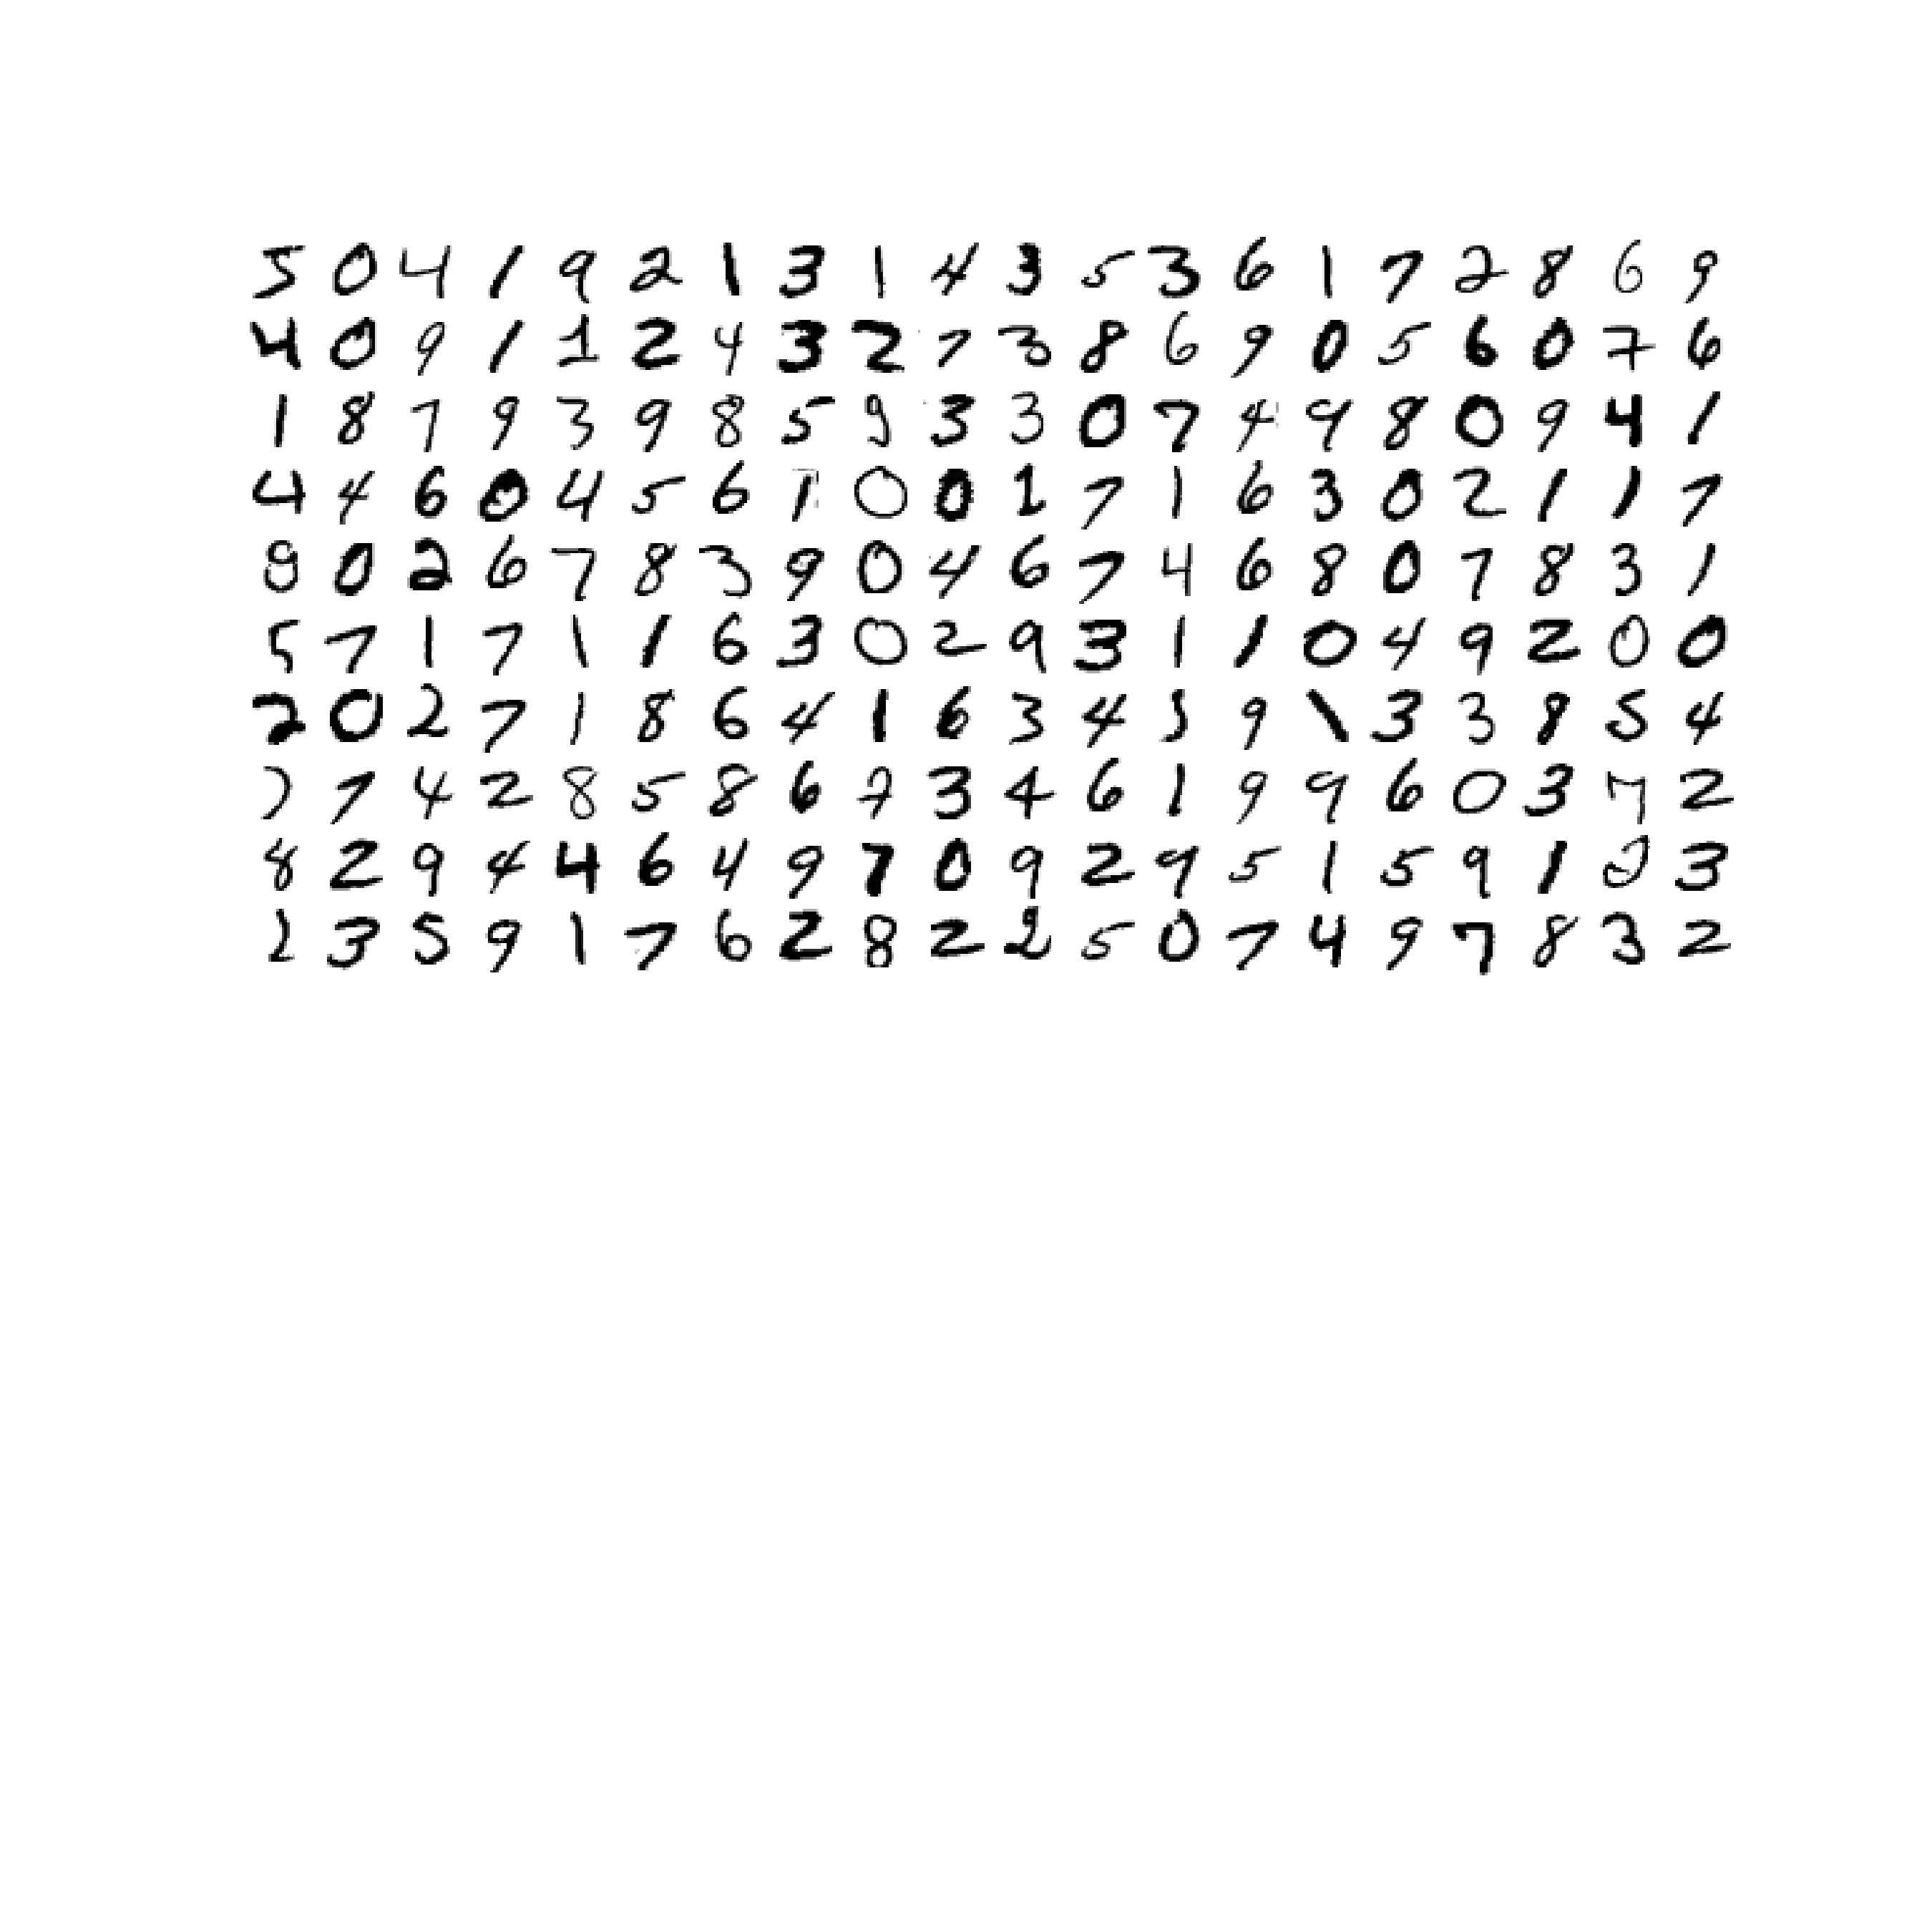 5 0 4 1 9 2 1 3 1 4 3 5 3 6 1 7 2 8 6 9
4 0 9 1 1 2 4 3 2 7 3 8 6 9 0 5 6 0 7 6
1 8 7 9 3 9 8 5 9 3 3 0 7 4 9 8 0 9 4 1
4 4 6 0 4 5 6 1 0 0 1 7 1 6 3 0 2 1 1 7
8 0 2 6 7 8 3 9 0 4 6 7 4 6 8 0 7 8 3 1
5 7 1 7 1 1 6 3 0 2 9 3 1 1 0 4 9 2 0 0
2 0 2 7 1 8 6 4 1 6 3 4 5 9 1 3 3 8 5 4
7 7 4 2 8 5 8 6 7 3 4 6 1 9 9 6 0 3 7 2
8 2 9 4 4 6 4 9 7 0 9 2 9 5 1 5 9 1 2 3
2 3 5 9 1 7 6 2 8 2 2 5 0 7 4 9 7 8 3 2